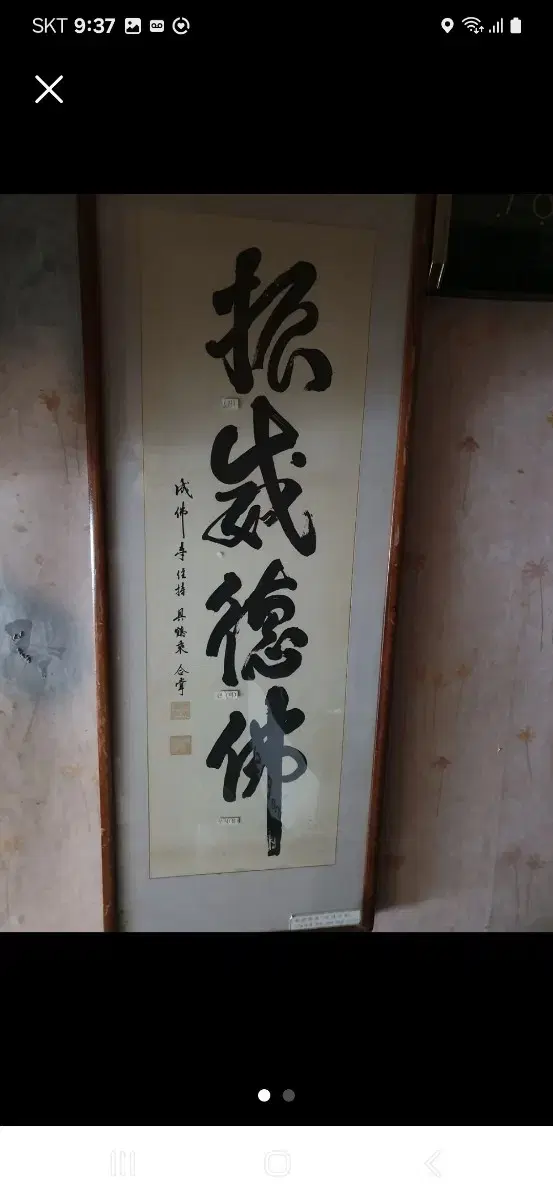 SKT 9:37
振威德佛
成佛寺住持 具鶴乘 合掌